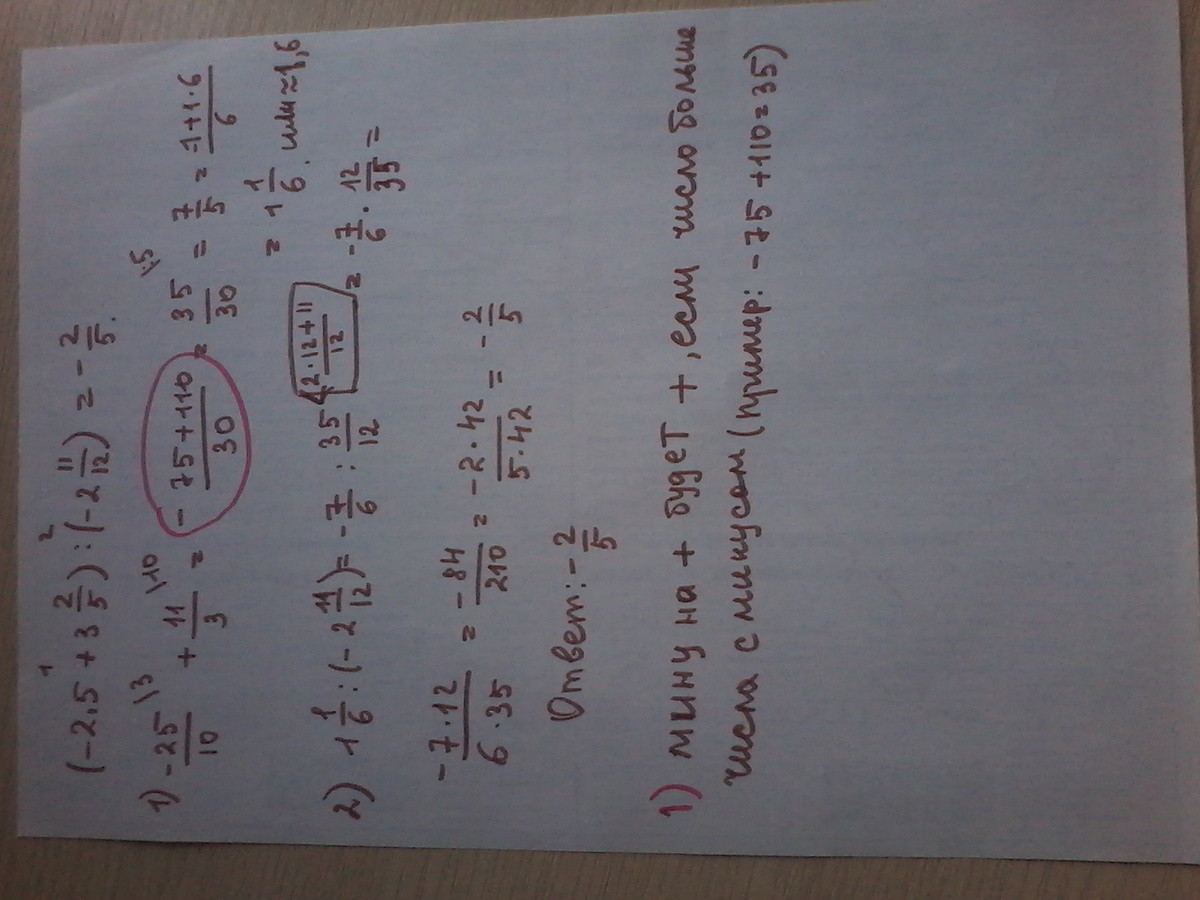 (-2,5 + 3 2/5) : (-2 11/12) = - 2/5.
1) - 25/10 \3 + 11/3 \10 = - 75+110/30 = 35/30 \:5 = 7/5 = 1+1·6/6
= 1 1/6. или ≈ 1,6
2) 1 1/6 : (-2 11/12) = - 7/6 : 35/12 2·12+11/12 = - 7/6 · 12/35 =
- 7·12/6·35 = - 84/210 = - 2·42/5·42 = - 2/5
Ответ: - 2/5
1) мину на + будет +, если число больше
числа с минусом (пример: - 75 + 110 = 35)